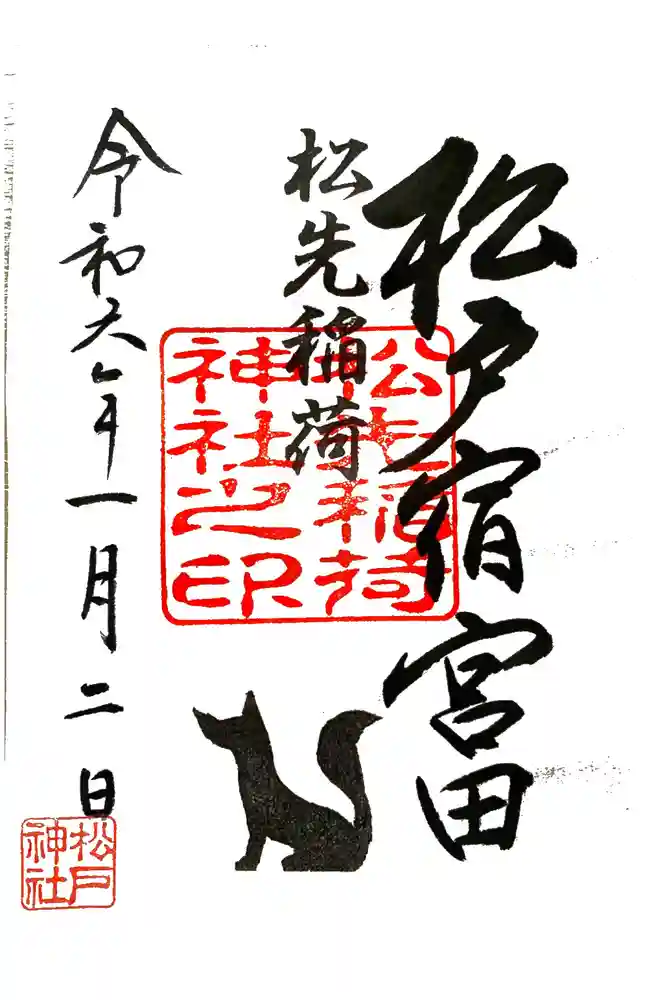 松戸宿宮田
松先稲荷
松先稲荷
神社之印
令和六年一月二日
松戸
神社